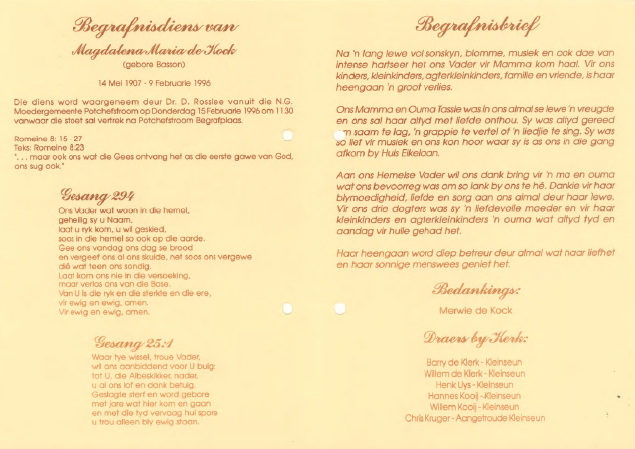 Begrafnisdiens van
Magdalena Maria de Kock
(gebore Basson)
14 Mei 1907 - 9 Februarie 1996
Die diens word waargeneem deur Dr. D. Rosslee vanuit die N.G.
Moedergemeente Potchefstroom op Donderdag 15 Februarie 1996 om 11:30
vanwaar die stoet sal vertrek na Potchefstroom Begrafplaas.
Romeine 8: 15 - 27
Teks: Romeine 8:23
". . . maar ook ons wat die Gees ontvang het as die eerste gawe van God,
ons sug ook."
Gesang 294
Ons Vader wat woon in die hemel,
geheilig sy u Naam,
laat u ryk kom, u wil geskied,
soos in die hemel so ook op die aarde.
Gee ons vandag ons dag se brood
en vergeef ons al ons skulde, net soos ons vergewe
dié wat teen ons sondig.
Laat kom ons nie in die versoeking,
maar verlos ons van die Bose.
Van U is die ryk en die sterkte en die ere,
vir ewig en ewig, amen.
Vir ewig en ewig, amen.
Gesang 25:1
Waar tye wissel, troue Vader,
wil ons aanbiddend voor U buig;
tot U, die Albeskikker, nader,
u al ons lof en dank betuig.
Geslagte sterf en word gebore
met jare wat hier kom en gaan
en met die tyd vervaag hul spore
u trou alleen bly ewig staan.
Begrafnisbrief
Na 'n lang lewe vol sonskyn, blomme, musiek en ook dae van
intense hartseer het ons Vader vir Mamma kom haal. Vir ons
kinders, kleinkinders, agterkleinkinders, familie en vriende, is haar
heengaan 'n groot verlies.
Ons Mamma en Ouma Tassie was in ons almal se lewe 'n vreugde
en ons sal haar altyd met liefde onthou. Sy was altyd gereed
om saam te lag, 'n grappie te vertel of 'n liedjie te sing. Sy was
so lief vir musiek en ons kon hoor waar sy is as ons in die gang
afkom by Huis Eikelaan.
Aan ons Hemelse Vader wil ons dank bring vir 'n ma en ouma
wat ons bevoorreg was om so lank by ons te hê. Dankie vir haar
blymoedigheid, liefde en sorg aan ons almal deur haar lewe.
Vir ons drie dogters was sy 'n liefdevolle moeder en vir haar
kleinkinders en agterkleinkinders 'n ouma wat altyd tyd en
aandag vir hulle gehad het.
Haar heengaan word diep betreur deur almal wat haar liefhet
en haar sonnige menswees geniet het.
Bedankings:
Merwie de Kock
Draers by Kerk:
Barry de Klerk - Kleinseun
Willem de Klerk - Kleinseun
Henk Uys - Kleinseun
Hannes Kooij - Kleinseun
Willem Kooij - Kleinseun
Chris Kruger - Aangetroude Kleinseun